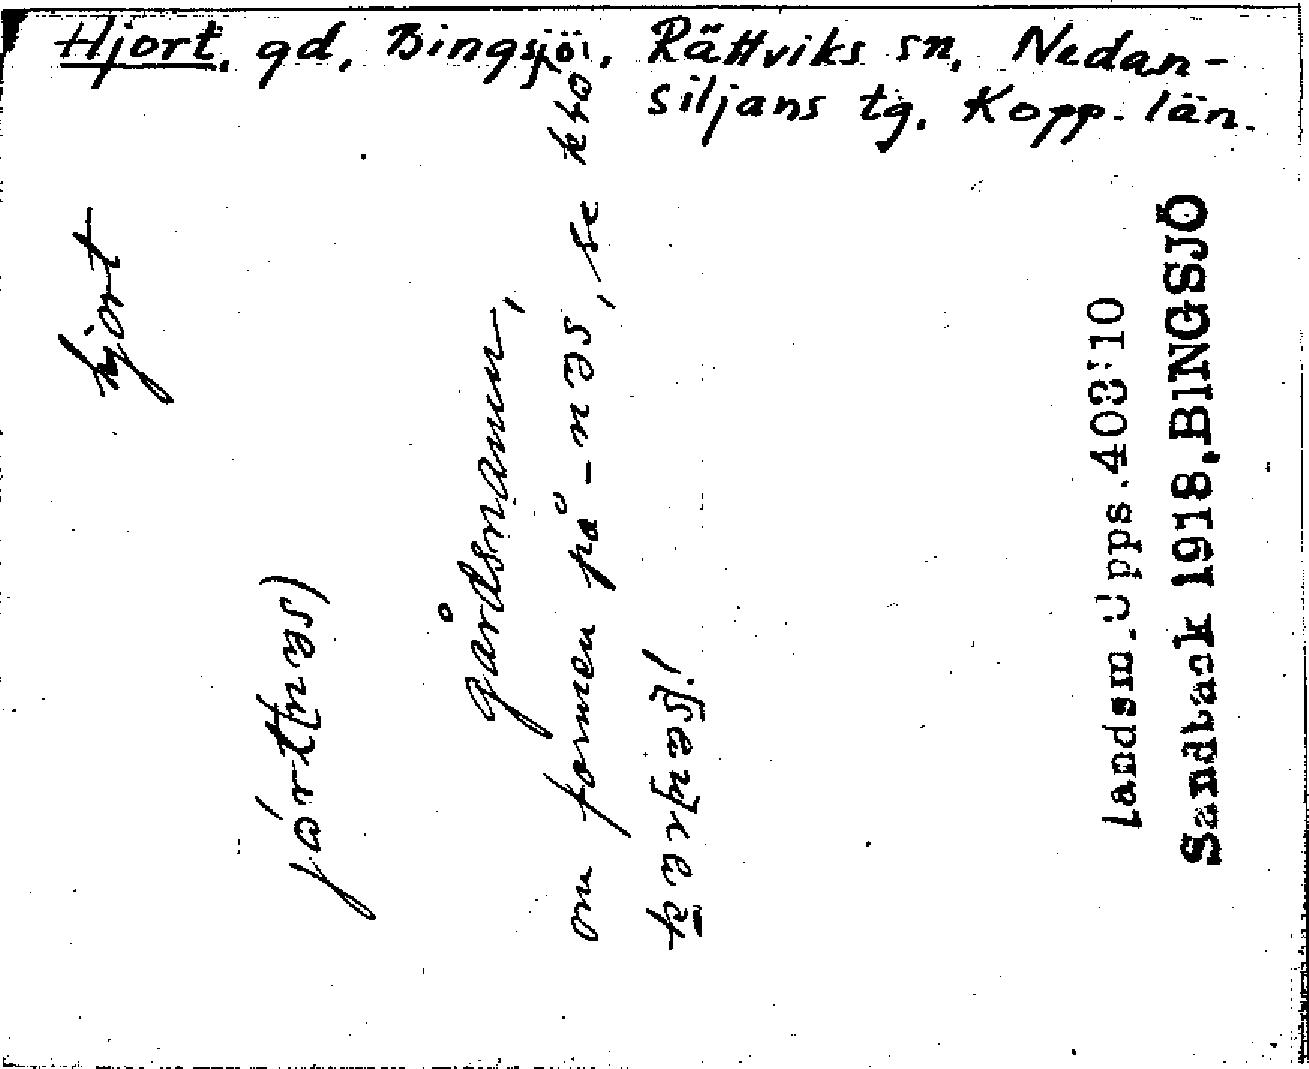 Hjort, gd, Bingsjö, Rättviks sn, Nedan-
siljans tg. Kopp. län.
hjort
gårdsnamn,
om formen på -nəs, se
Landsm. Upps. 403:10
Sandback 1918, BINGSJÖ